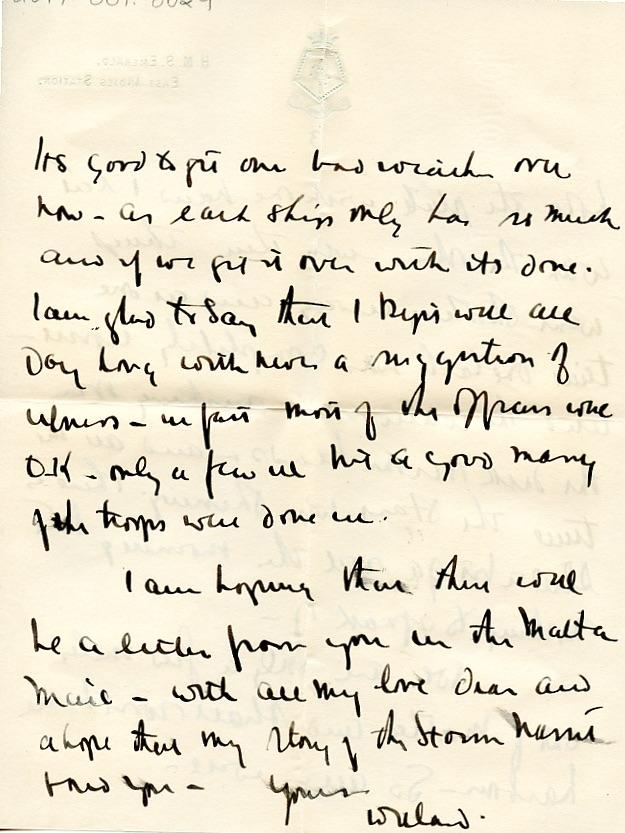 Its good to get one bad weather over
now - as each ship only has so much
and if we get it over with its done.
I am glad to say that I kept well all
Day long with never a suggestion of
illness - in fact most of the officers were
O.K - only a few ill but a good many
of the troops were done in.
I am hoping that there will
be a letter from you in the Malta
Mail - with all my love dear and
a hope that my story of the Storm hasn't
bored you - Yours